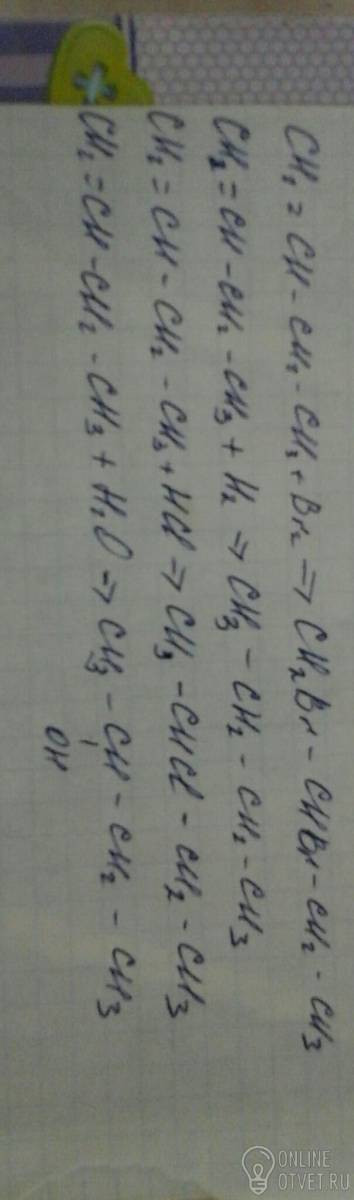 CH₂ = CH - CH₂ - CH₃ + Br₂ => CH₂Br - CHBr - CH₂ - CH₃
CH₂ = CH - CH₂ - CH₃ + H₂ => CH₃ - CH₂ - CH₂ - CH₃
CH₂ = CH - CH₂ - CH₃ + HCl => CH₃ - CHCl - CH₂ - CH₃
CH₂ = CH - CH₂ - CH₃ + H₂O => CH₃ - CH - CH₂ - CH₃
OH
ONLINE
OTVET.RU